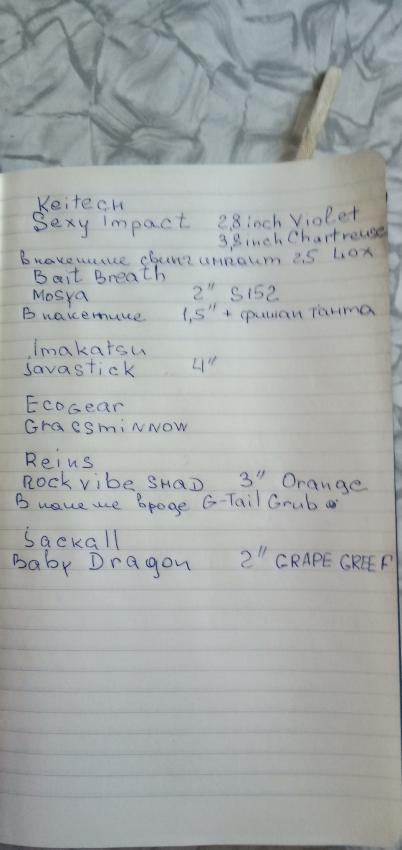 Keitech
Sexy Impact 2,8 inch Violet
3,8 inch Chartreuse
в пакетике свинг импакт 2.5 LOX
Bait Breath
Mosya 2" S152
В пакетике 1,5" + фишан танта
Imakatsu
Javastick 4"
Ecogear
Grassminnow
Reins
Rock vibe SHAD 3" Orange
В пакете вроде G-Tail Grub
Jackall
Baby Dragon 2" GRAPE GREEF